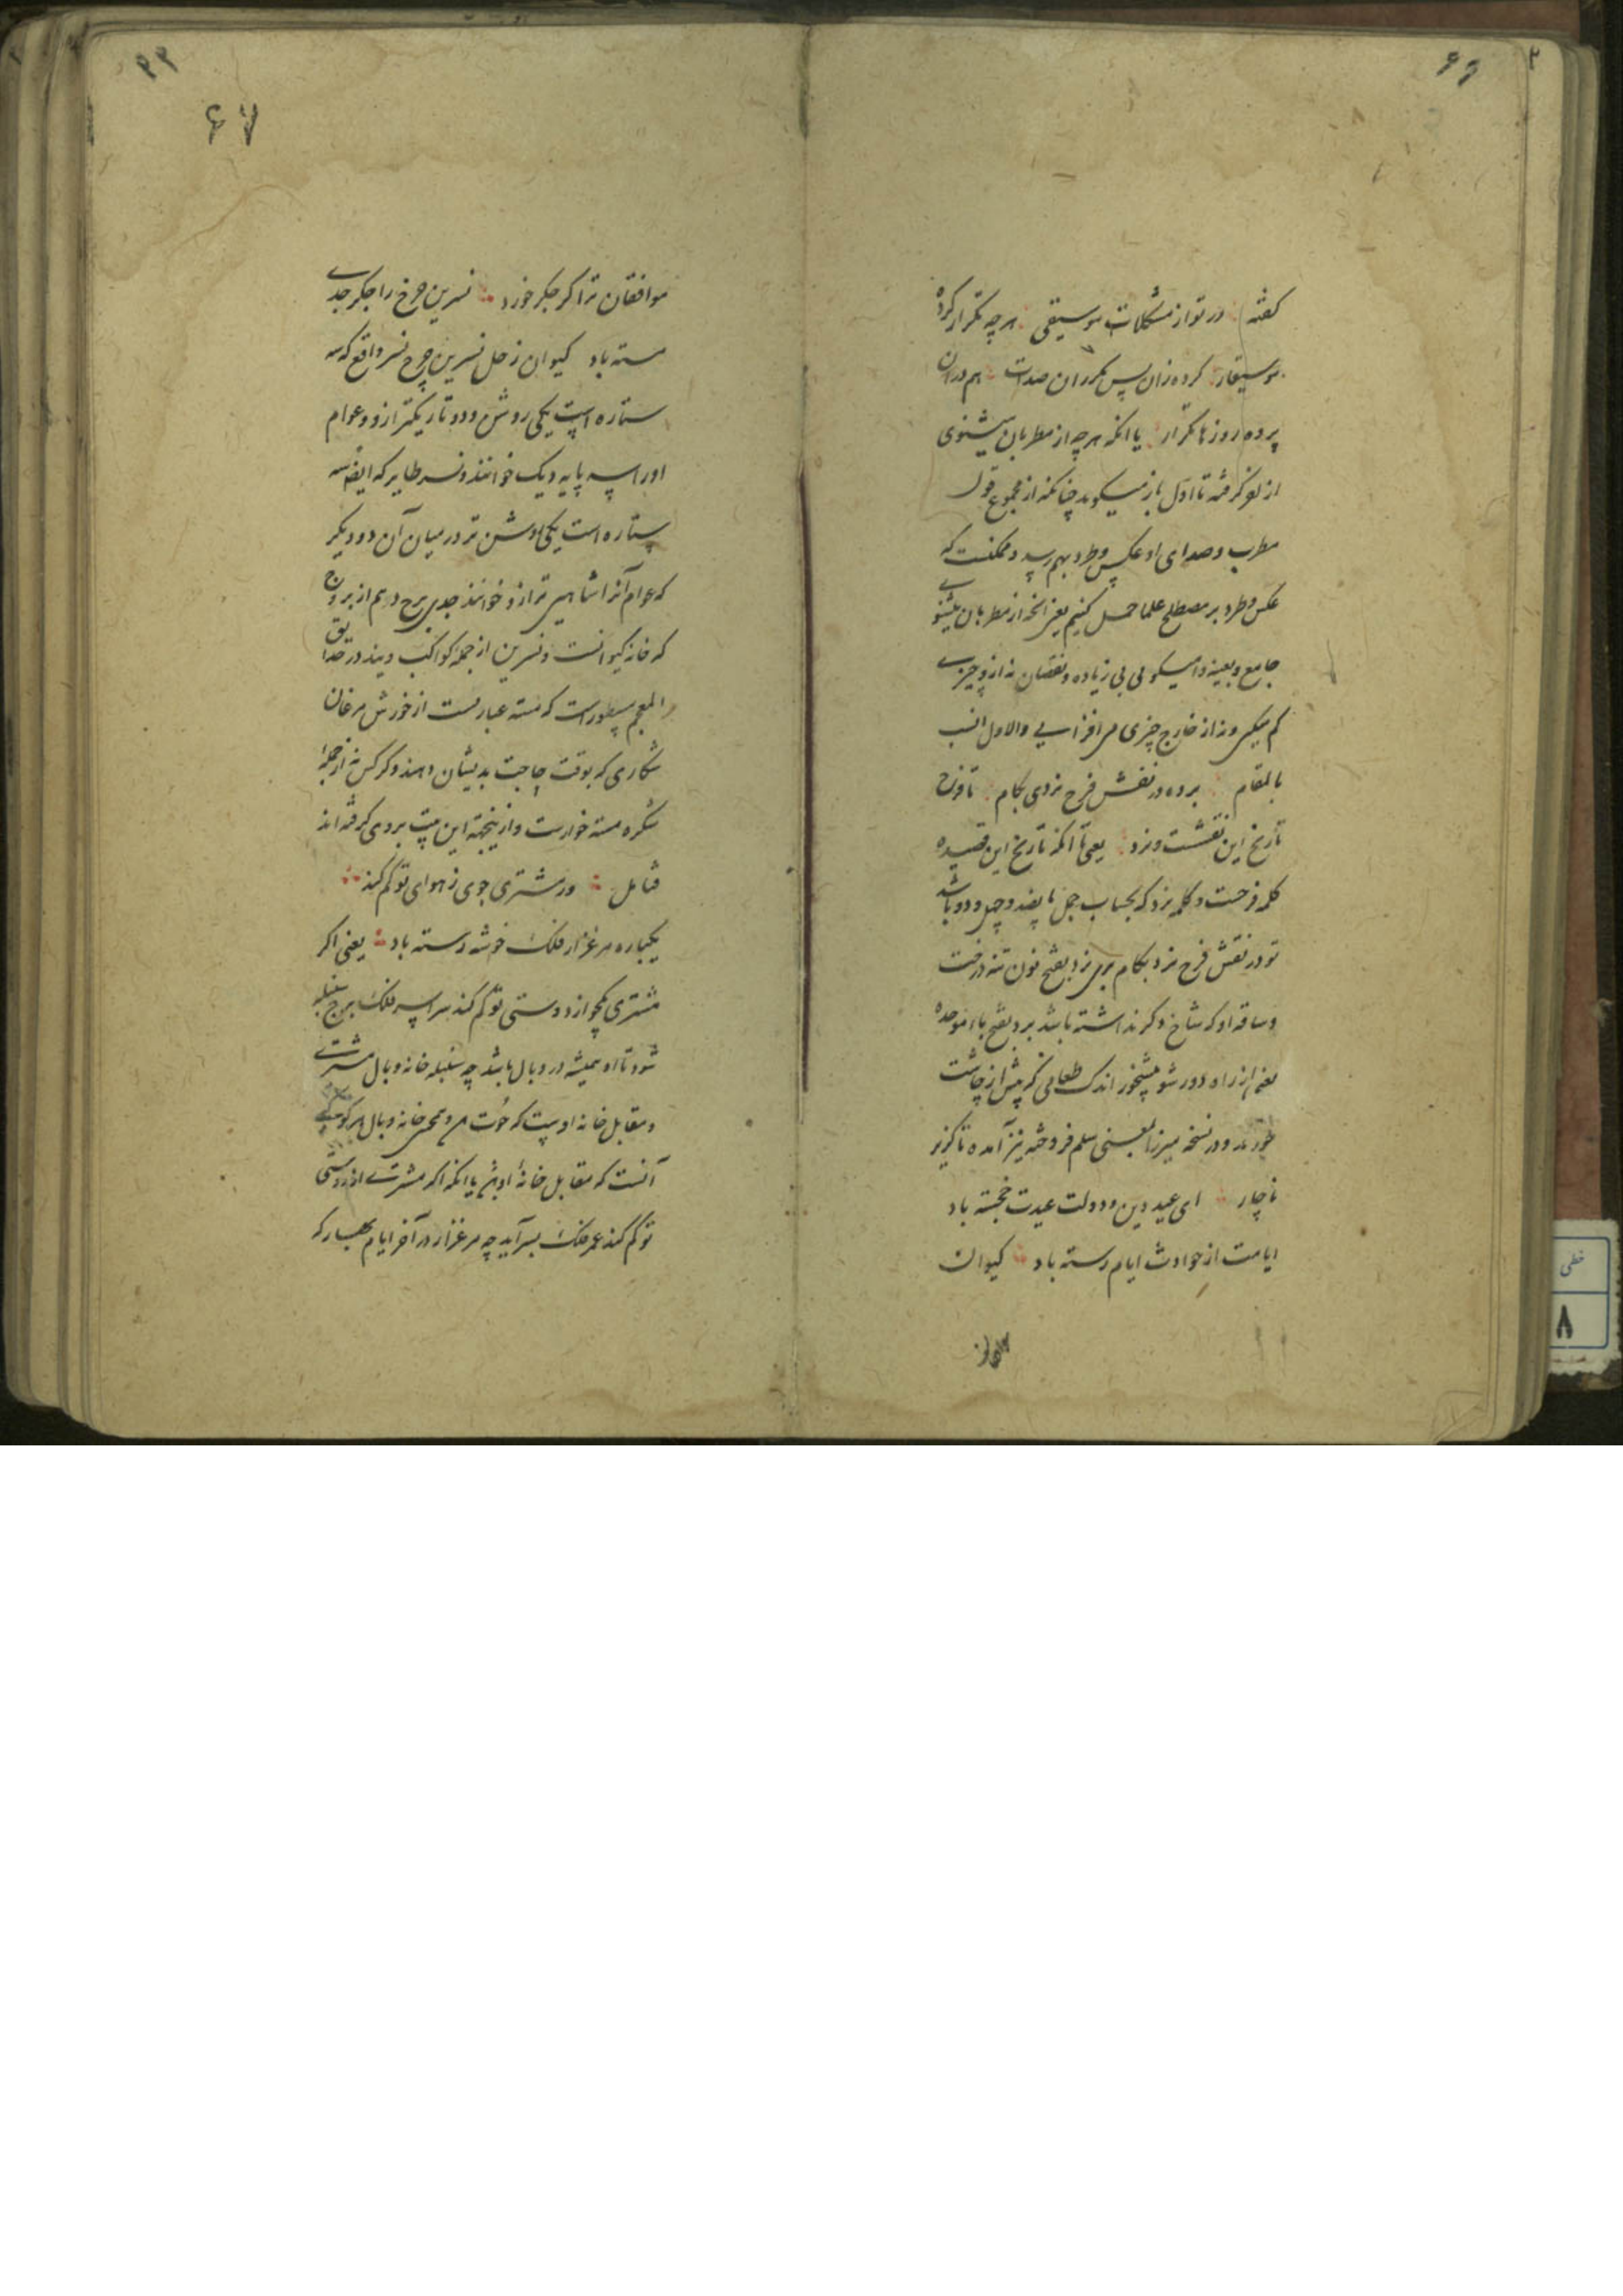 گفته در تو از مشکلات موسیقی هرچه تکرار کرده
موسیقار کرده زان پس مکرر ان صدات هم در ان
پرده روزها تکرار یا انکه هرچه از مطربان میشنوی
از نو گرفته تا اول باز میگوید چنانکه از مجموع قول
مطرب و صدای او عکس و طرد بهم رسد و ممکنست که
عکس و طرد بر مصطلح علما حمل کنیم یعنی انچه از مطربان میشنوی
جامع و بعینه وا میگوئی بی زیاده و نقصان نه از و چیزی
کم میکنی و نه از خارج چیزی می افزایی والاول انسب
بالمقام برده در نقش فرح نزدی بکام تا فرح
تاریخ این نقشست و نرد یعنی تا انکه تاریخ این قصیده
کلمه فرحست و کلمه نرد که بحساب جمل پانصد و چهل و دو باشد
تو در نقش فرح نرد بکام بری نرد بفتح نون تنه درخت
و ساقه او که شاخ دگر نداشته باشد برد بفتح باء موحده
یعنی از راه دور شو پیشخور اندک طعامی که پیش از چاشت
خورند و در نسخه میرزا بمعنی سلم فروخته نیز آمده ناگزیر
ناچار ای عید دین و دولت عیدت خجسته باد
ایامت از حوادث ایام رسته باد کیوان
موافقان
۶۷
موافقان ترا گر جگر خورد نسرین چرخ را جگر جدی
مسته باد کیوان زحل نسرین چرخ نسر واقع که سه
ستاره است یکی روشن و دو تاریکتر ازو و عوام
اورا سه پایه دیک خوانند و نسر طایر که ایضا سه
ستاره است یکی روشن تر در میان آن دو دیگر
که عوام آنرا شاهین ترازو خوانند جدی برج دهم از بروج
که خانه کیوانست و نسرین از جمله کواکب ویند در حدائق
المعجم مسطور است که مسته عبارتست از خورش مرغان
شکاری که بوقت حاجت بدیشان دهند و کرکس نه از جمله
شکره مسته خوارست و ازینجهة این بیت بر وی گرفته اند
فتامل ور مشتری جوی ز هوای تو کم کند
یکباره مرغزار فلک خوشه رسته باد یعنی اگر
مشتری یکجو از دوستی تو کم کند سراسر فلک برج سنبله
شود تا او همیشه در وبال باشد چه سنبله خانه وبال مشتری
و مقابل خانه اوست که حوت و خانه وبال هر کوکبی
آنست که مقابل خانه او بود یا انکه اگر مشتری از دوستی
تو کم کند عمر فلک بسر آید چه مرغزار در آخر ایام بهار که
خطی
۸